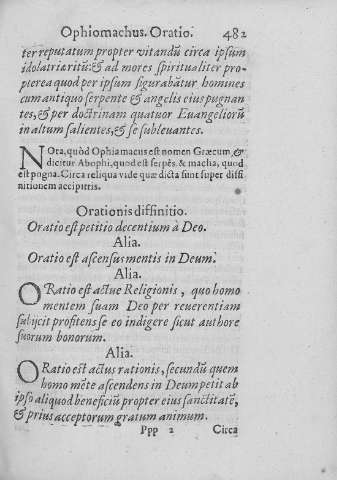 Ophiomachus. Oratio. 482
ter reputatum propter vitandũ circa ipsum
idolatriæ ritũ: & ad mores spiritualiter pro-
pterea quod per ipsum figurabãtur homines
cum antiquo serpente & angelis eius pugnan
tes, & per doctrinam quatuor Euangeliorũ
in altum salientes, & se subleuantes.
NOta, quòd Ophiamacus est nomen Græcum, &
dicitur Abophi, quod est serpẽs. & macha, quod
est pogna. Circa reliqua vide quæ dicta sunt super diffi
nitionem accipitris.
Orationis diffinitio.
Oratio est petitio decentium à Deo.
Alia.
Oratio est ascensus mentis in Deum.
Alia.
ORatio est actue Religionis, quo homo
mentem suam Deo per reuerentiam
subijcit profitens se eo indigere sicut authore
suorum bonorum.
Alia.
ORatio est actus rationis, secundũ quem
homo mẽte ascendens in Deum petit ab
ipso aliquod beneficiũ propter eius sanctitatẽ,
& prius acceptorum gratum animum.
Ppp 2 Circa